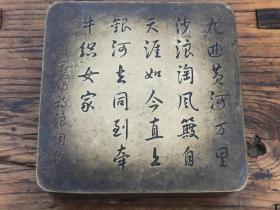 九曲黄河万里
沙浪淘风簸自
天涯如今直上
银河去同到牵
牛织女家
刘禹锡诗浪淘沙